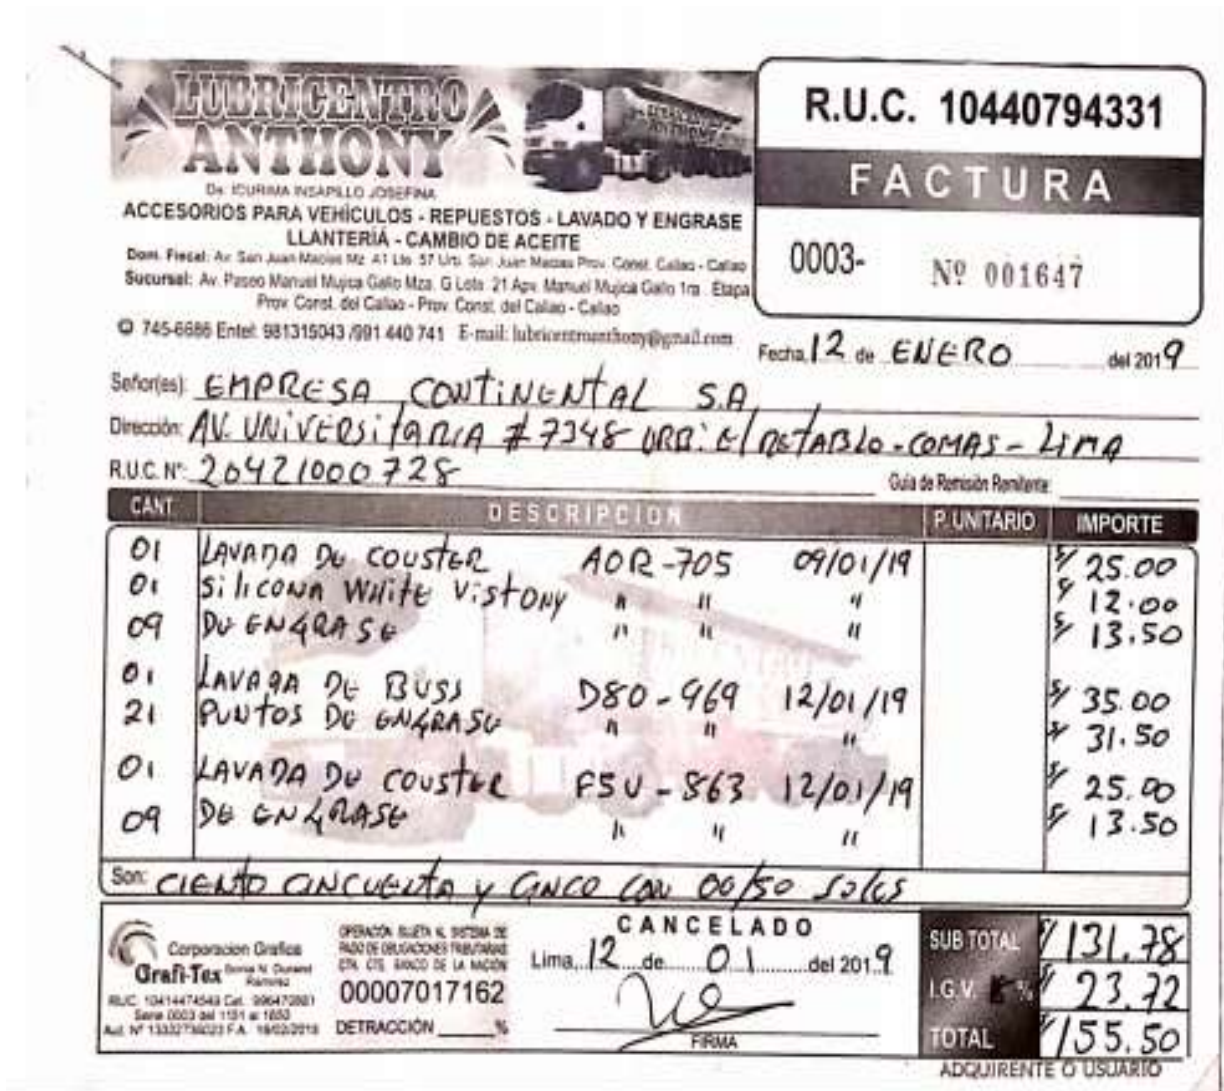 LUBRICENTRO
ANTHONY
De: ICURIMA INSAPILLO JOSEFINA
ACCESORIOS PARA VEHÍCULOS - REPUESTOS - LAVADO Y ENGRASE
LLANTERÍA - CAMBIO DE ACEITE
Dom. Fiscal: Av. San Juan Macias Mz. A1 Lte. 57 Urb. San Juan Macias Prov. Const. Callao - Callao
Sucursal: Av. Paseo Manuel Mujica Gallo Mza. G Lote. 21 Apv. Manuel Mujica Gallo 1ra. Etapa
Prov. Const. del Callao - Prov. Const. del Callao - Callao
745-6686 Entel: 981315043 /991 440 741 E-mail: lubricentroanthony@gmail.com
R.U.C. 10440794331
FACTURA
0003- Nº 001647
Fecha, 12 de ENERO del 2019
Señor(es): EMPRESA CONTINENTAL S.A
Dirección: AV. UNIVERSITARIA # 7348 URB: El RETABLO - COMAS - LIMA
R.U.C. N°: 20421000728 Guia de Remisión Remitente:
CANT. DESCRIPCION P. UNITARIO IMPORTE
01 LAVADA DE COUSTER AOR-705 09/01/19 S/ 25.00
01 Silicona White Vistony " " " S/ 12.00
09 DE ENGRASE " " " S/ 13.50
01 LAVADA DE BUSS D80-969 12/01/19 S/ 35.00
21 PUNTOS DE ENGRASE " " " S/ 31.50
01 LAVADA DE COUSTER F5U-863 12/01/19 S/ 25.00
09 DE ENGRASE " " " S/ 13.50
Son: CIENTO CINCUENTA Y CINCO CON 00/50 SOLES
Corporacion Grafica
Grafi-Tex
OPERACIÓN SUJETA AL SISTEMA DE
PAGO DE OBLIGACIONES TRIBUTARIAS
CTA. CTE. BANCO DE LA NACIÓN
00007017162
DETRACCIÓN %
CANCELADO
Lima, 12 de 01 del 2019
FIRMA
SUB TOTAL S/ 131.78
I.G.V. % S/ 23.72
TOTAL S/ 155.50
ADQUIRENTE O USUARIO